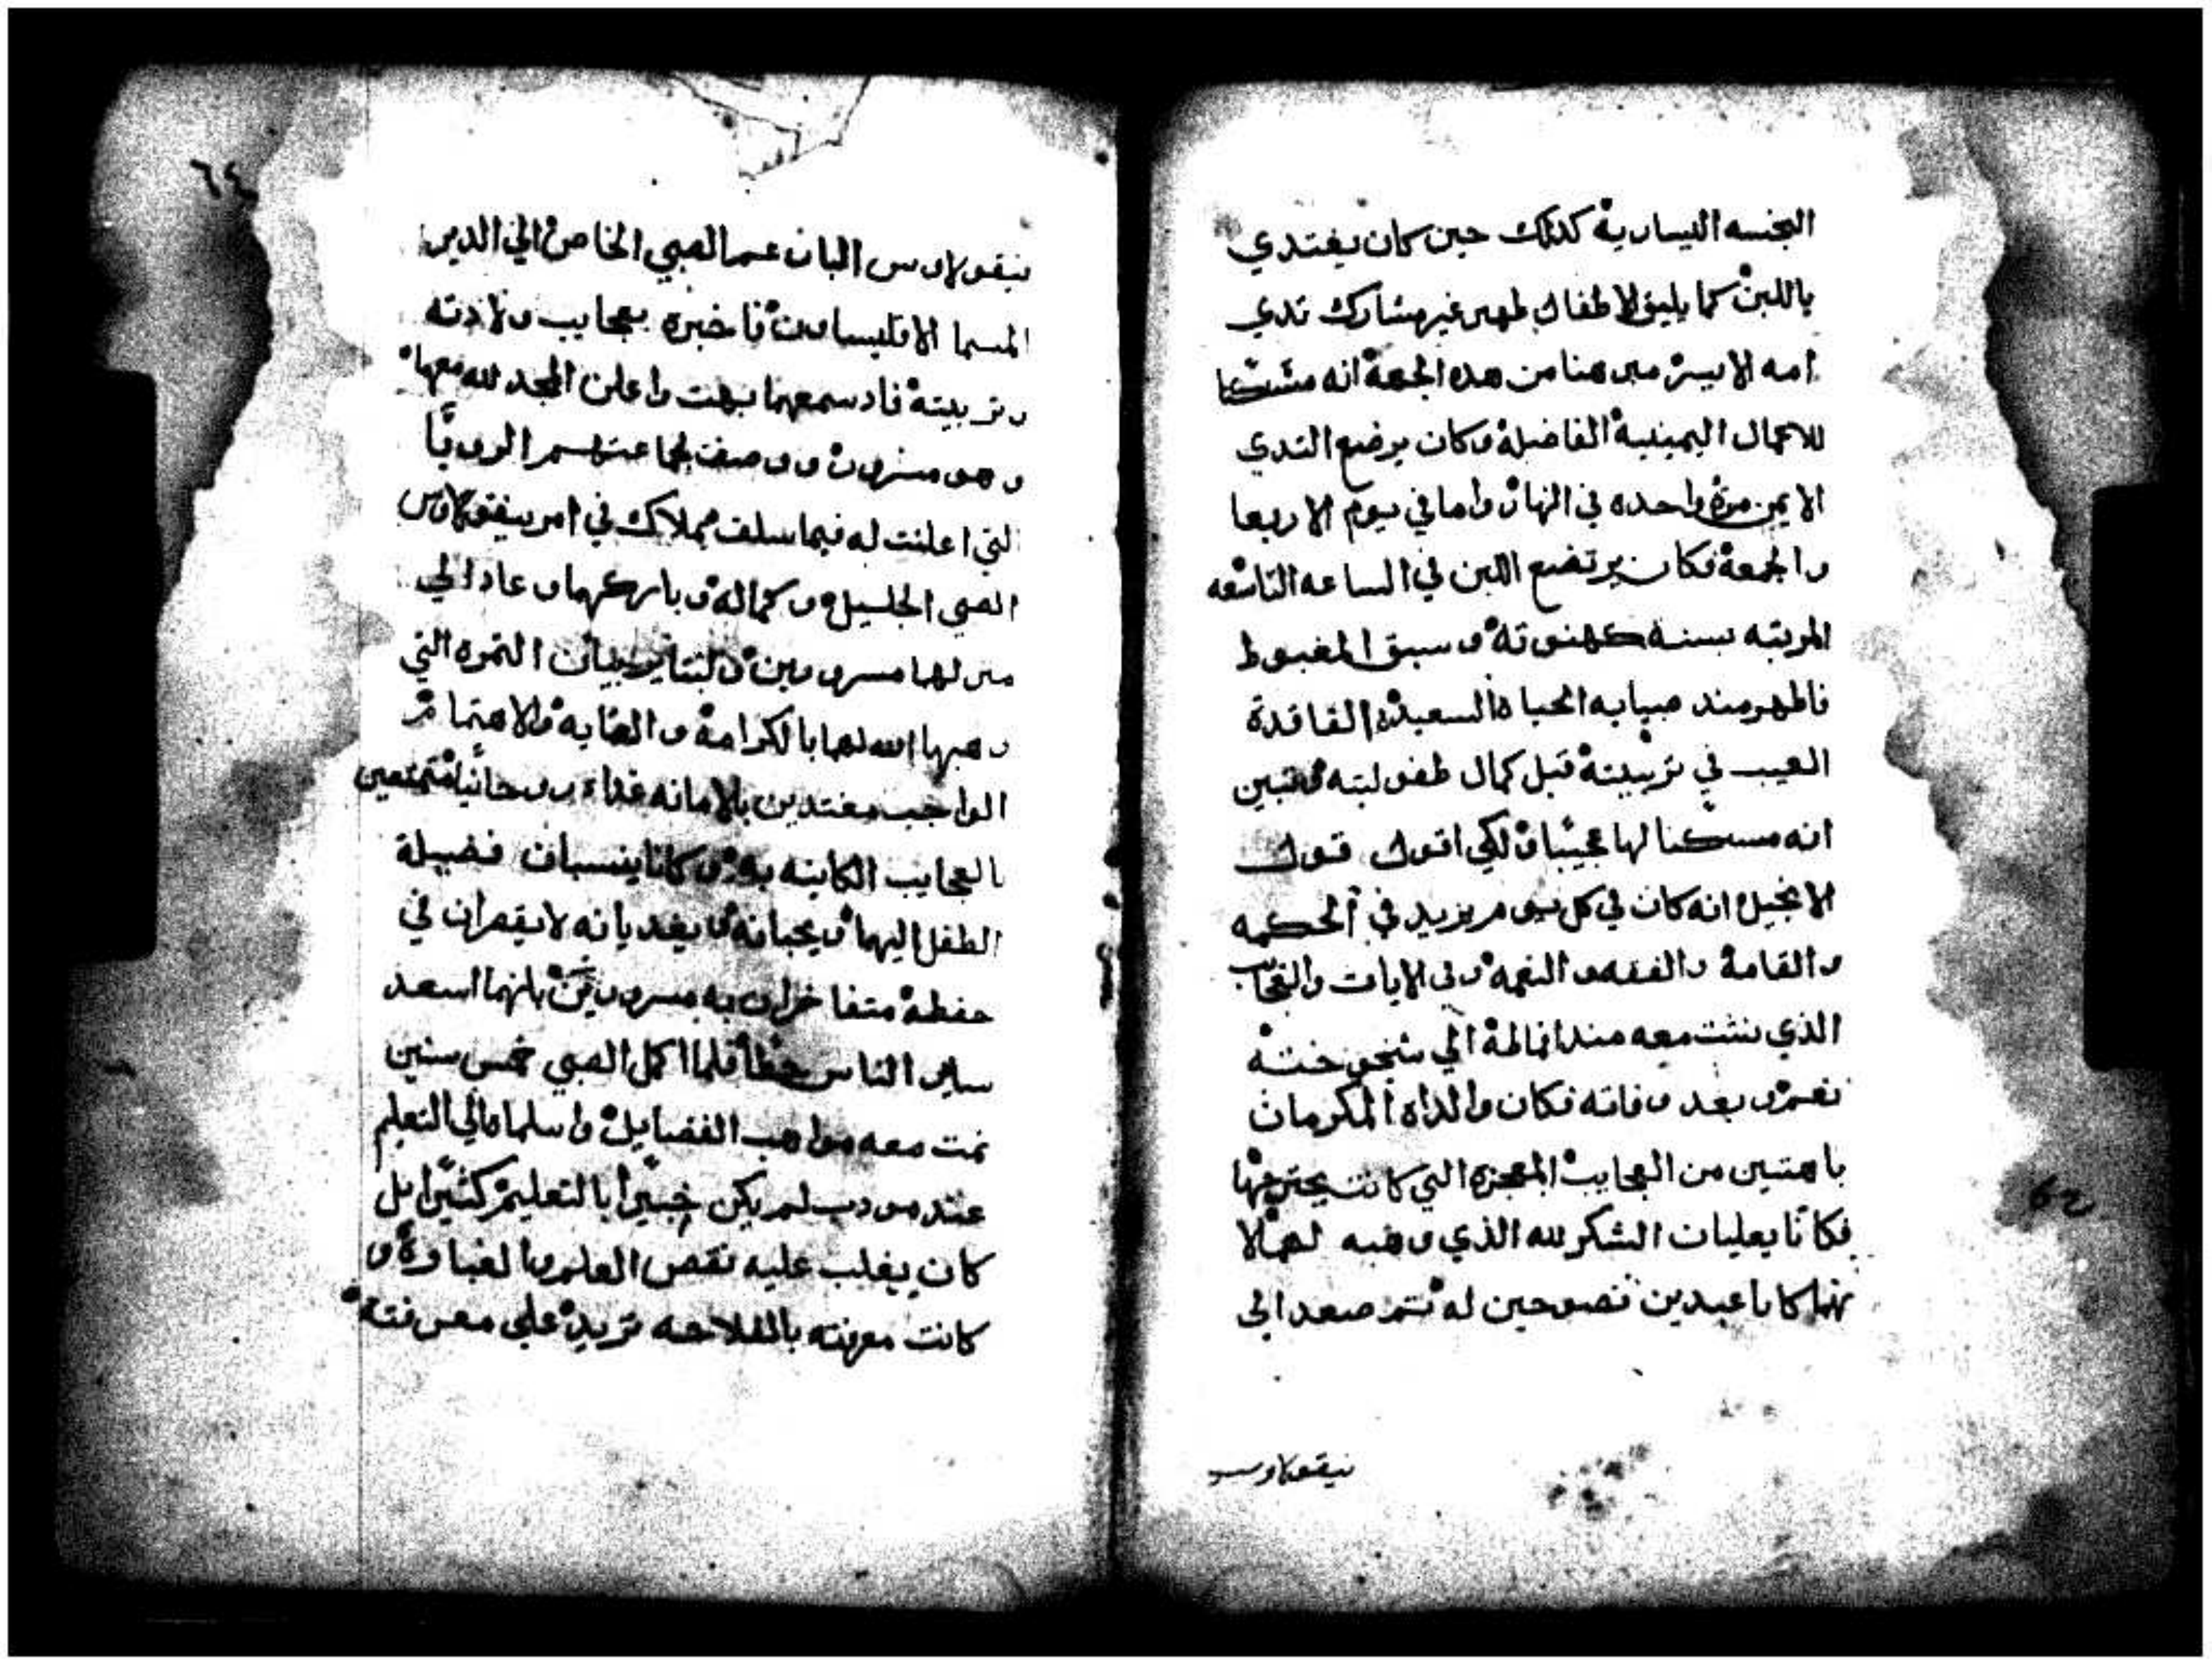 النجسه اليسارية كدلك حين كان يغتدي
باللبن كما يليق لاطفال ظهر غير مشارك تدي
امه الايسر مبرهنا من هده الجهة انه مشتركا
للاعمال اليمينية الفاضلة وكان يرضع التدي
الايمن مرة واحده في النهار واما في يوم الاربعا
والجمعة فكان يرتضع اللبن في الساعه التاسعه
المرتبه بسنه كهنوته وسبق المغبوط
فاظهر مند صبايه الحياة السعيدة الفاقدة
العيب في تربيته قبل كمال طفوليته وتبين
انه مسكنا لها عجيبا ولكي اقول قول
الانجيل انه كان في كل يوم يزيد في الحكمه
والقامة والفقه والنعمة وفي الايات والعجايب
الذي نشت معه مند الي شيخوخته
نعم وبعد وفاته فكان والداه المكرمان
باهتين من العجايب المعجزه التي كانت يجترحها
فكانا يعليان الشكر لله الذي وهبه لهما لا
نهما كانا عبدين نصوحين له تم صعد الى
نيقولاوس
٦٤
نيقولاوس البار عم الصبي الخاص الي الدير
المسما الاقليساون فاخبره بعجايب ولادته
وتربيته فاد سمعهما بهت واعلن المجد لله معهما
وهو مسرور ووصف لجماعتهم الرويا
التي اعلنت له فيما سلف بملاك في امر نيقولاوس
الصبي الجليل وكماله وباركهما وعاد الي
منزلهما مسرورين ولبتا يربيان التمره التي
وهبها الله لهما بالكرامة والعنايه والاهتمام
الواجب مغتدين بالامانه غداء روحانيا متمتعين
بالعجايب الكاينه به وكانا ينسبان فضيلة
الطفل اليهما ويحبانه ويغديانه لا يقصران في
حفظه متفاخران به مسرورين بانهما اسعد
ساير الناس حظا فلما اكمل الصبي خمس سنين
نمت معه مواهب الفضايل واسلماه الي التعلم
عند مودب لم يكن خبيرا بالتعليم كثيرا بل
كان يغلب عليه نقص العلم والغباوة و
كانت معرفته بالفلاحه تزيد على معرفته